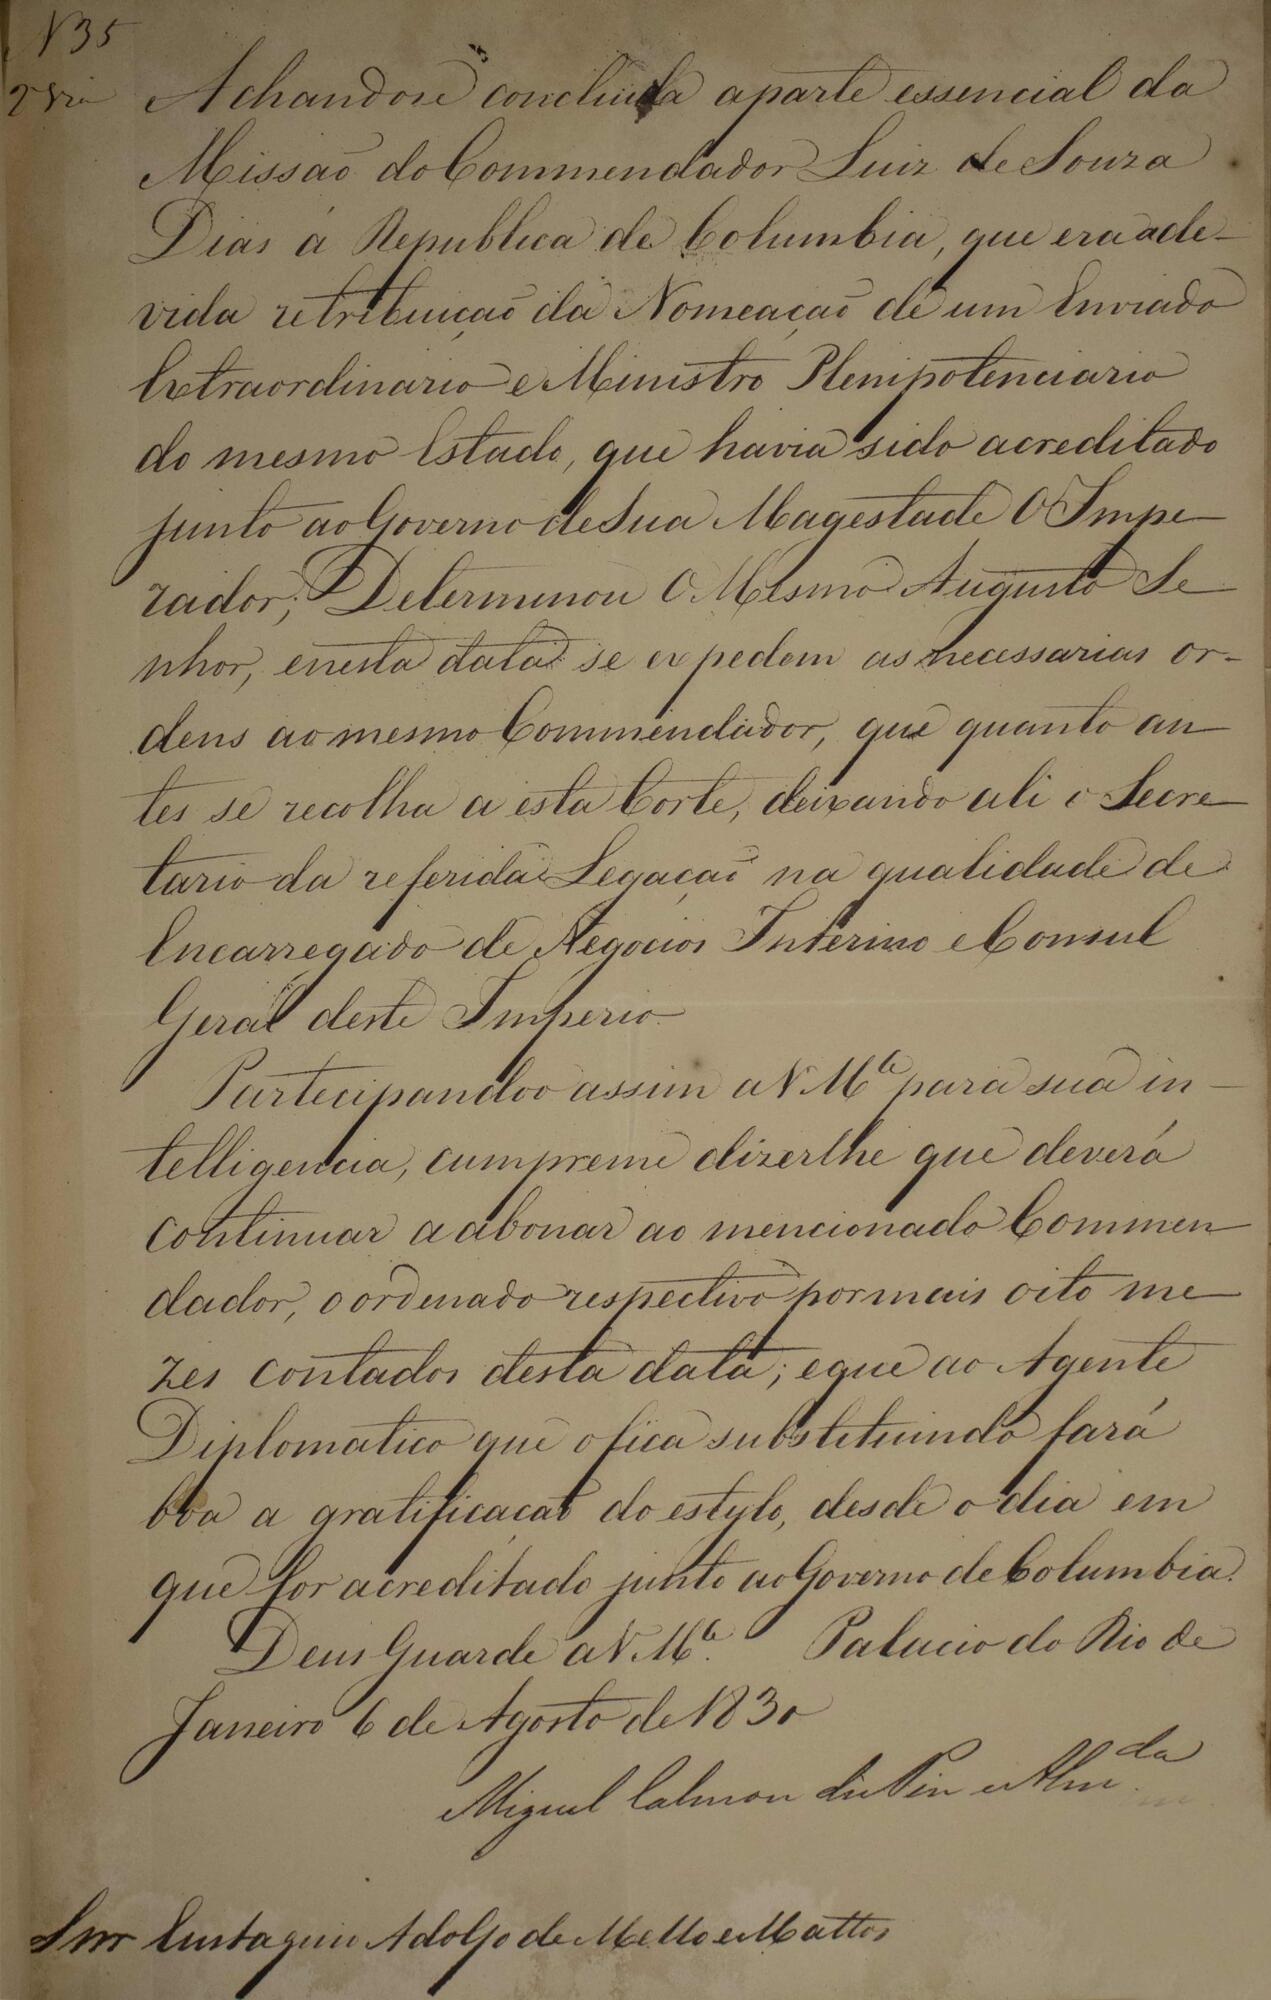 N 35
2ª Via
Achandose concluida aparte essencial da
Missaõ do Commendador Luiz de Souza
Dias á Republica de Columbia, que era a de-
vida retribuiçaõ da Nomeaçaõ de um Enviado
Extraordinario e Ministro Plenipotenciario
do mesmo Estado, que havia sido acreditado
junto ao Governo de Sua Magestade O Impe-
rador; Determinou O Mesmo Augusto Se-
nhor, e nesta data se expedem as necessarias or-
dens ao mesmo Commendador, que quanto an-
tes se recolha a esta Corte, deixando ali o Secre-
tario da referida Legaçaõ na qualidade de
Encarregado de Negocios Interino e Consul
Geral deste Imperio.
Partecipandoo assim a V Mce para sua in-
telligencia, cumpreme dizerlhe que deverá
continuar a abonar ao mencionado Commen-
dador, o ordenado respectivo por mais oito me-
zes contados desta data; e que ao Agente
Diplomatico que o fica substituindo fará
boa a gratificaçaõ do estylo, desde o dia em
que for acreditado junto ao Governo de Columbia.
Deus Guarde a V Mce. Palacio do Rio de
Janeiro 6 de Agosto de 1830
Miguel Calmon du Pin e Almda
Snr Eustaquio Adolfo de Mello e Mattos